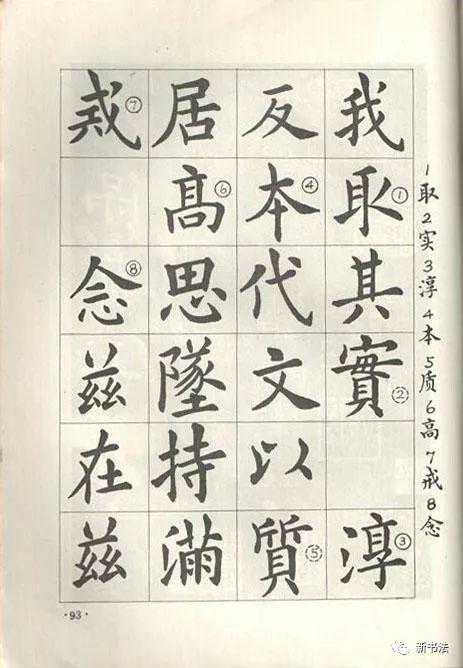 1取2实3淳4本5质6高7戒8念
我取①其實②淳③
反本④代文以質⑤
居髙⑥思墜持滿
戒⑦念⑧茲在茲
·93·
新书法